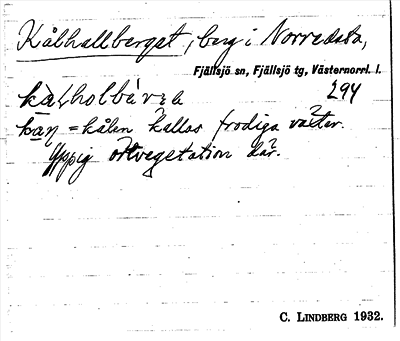 Kålhallberget, berg i Norredsta,
Fjällsjö sn, Fjällsjö tg, Västernorrl. l.
294
= kålen kallas frodiga växter.
Yppig örtvegetation där.
C. LINDBERG 1932.